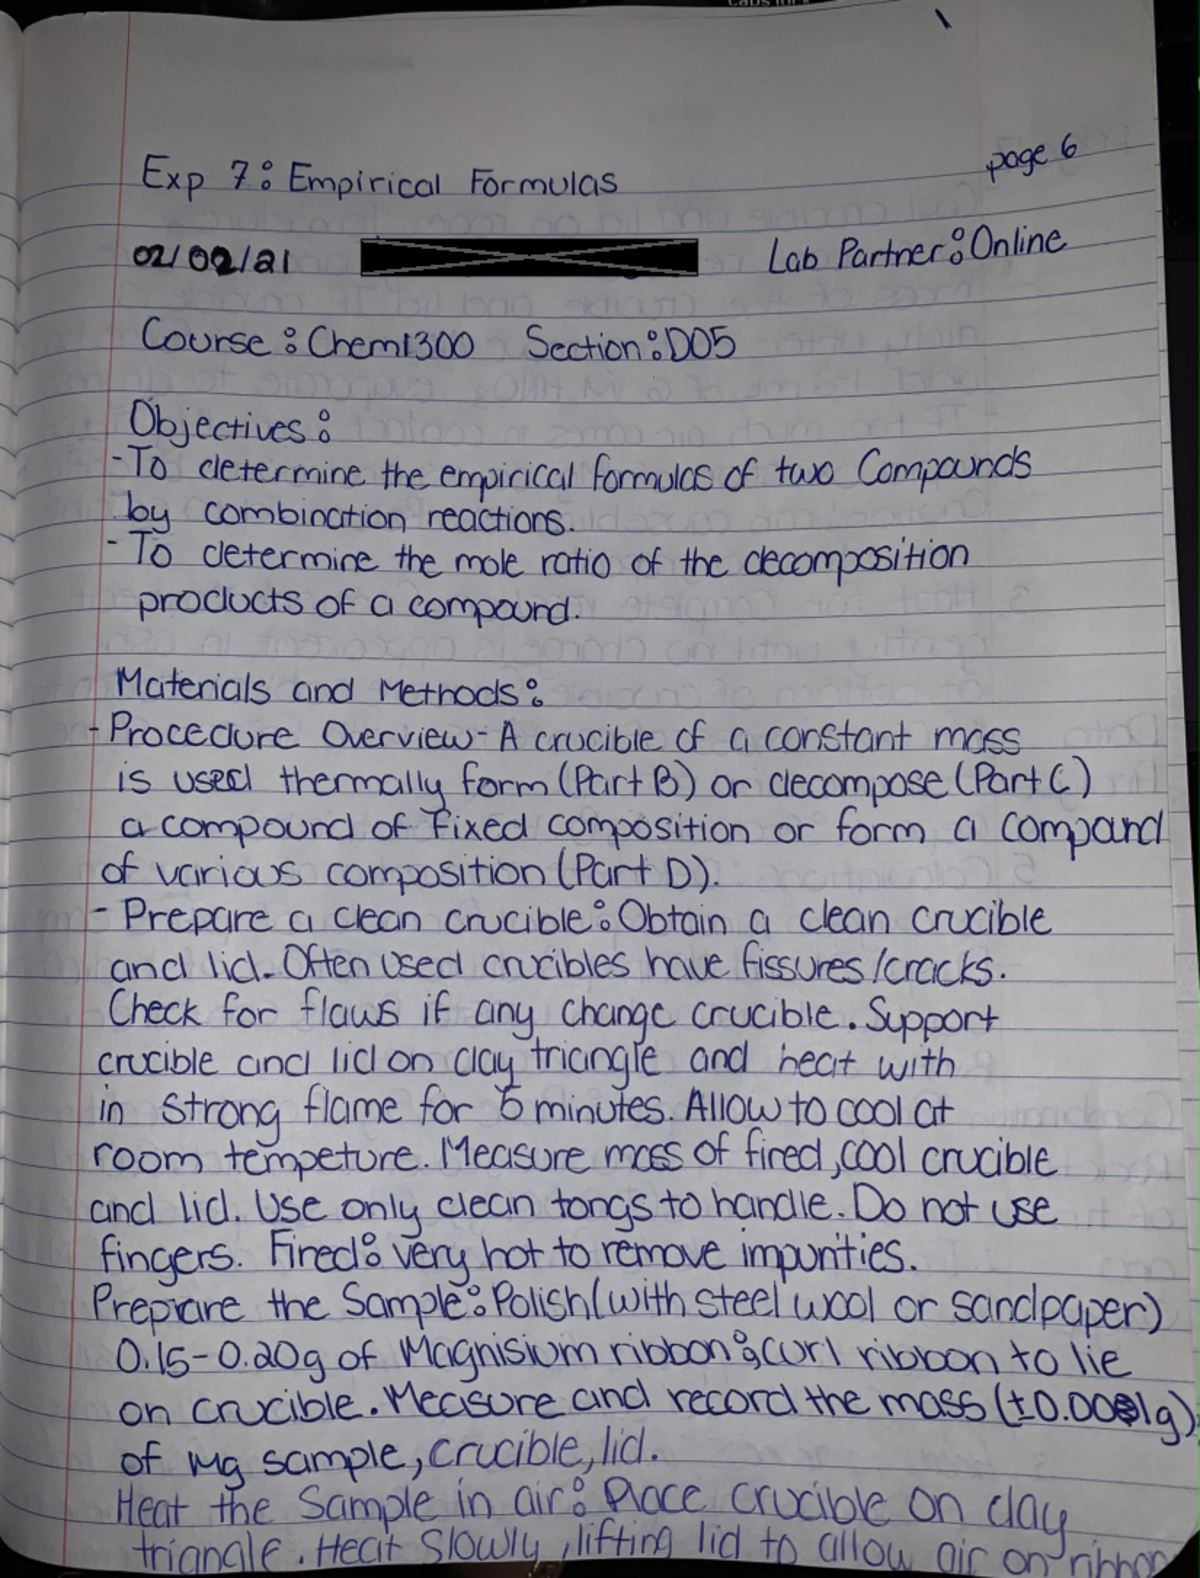 Exp 7: Empirical Formulas page 6
02/02/21 Lab Partner: Online
Course: Chem1300 Section: D05
Objectives:
- To determine the empirical formulas of two Compounds
by combination reactions.
- To determine the mole ratio of the decomposition
products of a compound.
Materials and Methods:
- Procedure Overview - A crucible of a constant mass
is used thermally form (Part B) or decompose (Part C)
a compound of fixed composition or form a compound
of various composition (Part D).
- Prepare a clean crucible: Obtain a clean crucible
and lid. Often used crucibles have fissures/cracks.
Check for flaws if any change crucible. Support
crucible and lid on clay triangle and heat with
in strong flame for 5 minutes. Allow to cool at
room tempeture. Measure mass of fired, cool crucible
and lid. Use only clean tongs to handle. Do not use
fingers. Fired: very hot to remove impurities.
Prepare the Sample: Polish (with steel wool or sandpaper)
0.15-0.20g of Magnisium ribbon; curl ribbon to lie
on crucible. Measure and record the mass (±0.001g)
of Mg sample, crucible, lid.
Heat the Sample in air: Place crucible on clay
triangle. Heat Slowly, lifting lid to allow air on ribbon